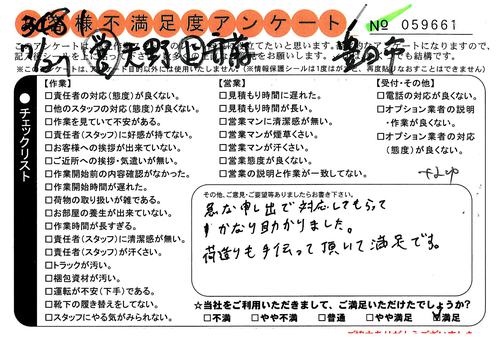 お客様不満足度アンケート
№ 059661
チェックリスト
【作業】
□責任者の対応(態度)が良くない。
□他のスタッフの対応(態度)が良くない。
□作業を見ていて不安がある。
□責任者(スタッフ)に好感が持てない。
□お客様への挨拶が出来ていない。
□ご近所への挨拶・気遣いが無い。
□作業開始前の内容確認がなかった。
□作業開始時間が遅れた。
□荷物の取り扱いが雑である。
□お部屋の養生が出来ていない。
□作業時間が長すぎる。
□責任者(スタッフ)に清潔感が無い。
□責任者(スタッフ)が汗くさい。
□トラックが汚い。
□梱包資材が汚い。
□運転が不安(下手)である。
□靴下の履き替えをしてない。
□スタッフにやる気がみられない。
【営業】
□見積もり時間に遅れた。
□見積もり時間が長い。
□営業マンに清潔感が無い。
□営業マンが煙草くさい。
□営業マンが汗くさい。
□営業態度が良くない。
□営業の説明と作業が一致してない。
【受付・その他】
□電話の対応が良くない。
□オプション業者の説明
・作業が良くない。
□オプション業者の対応
(態度)が良くない。
その他、ご意見・ご要望等ありましたらお書き下さい。
急な申し出で対応してもらって
かなり助かりました。
荷造りも手伝って頂いて満足です。
☆当社をご利用いただきまして、ご満足いただけたでしょうか?
□不満 □やや不満 □普通 □やや満足 ☑満足